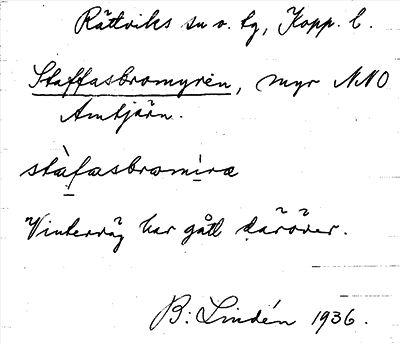 Rättviks sn o. tg, Kopp. l.
Staffasbromyren, myr NNO
Amtjärn.
stàfasbromiræ
Vinterväg har gått däröver.
B: Lindén 1936.